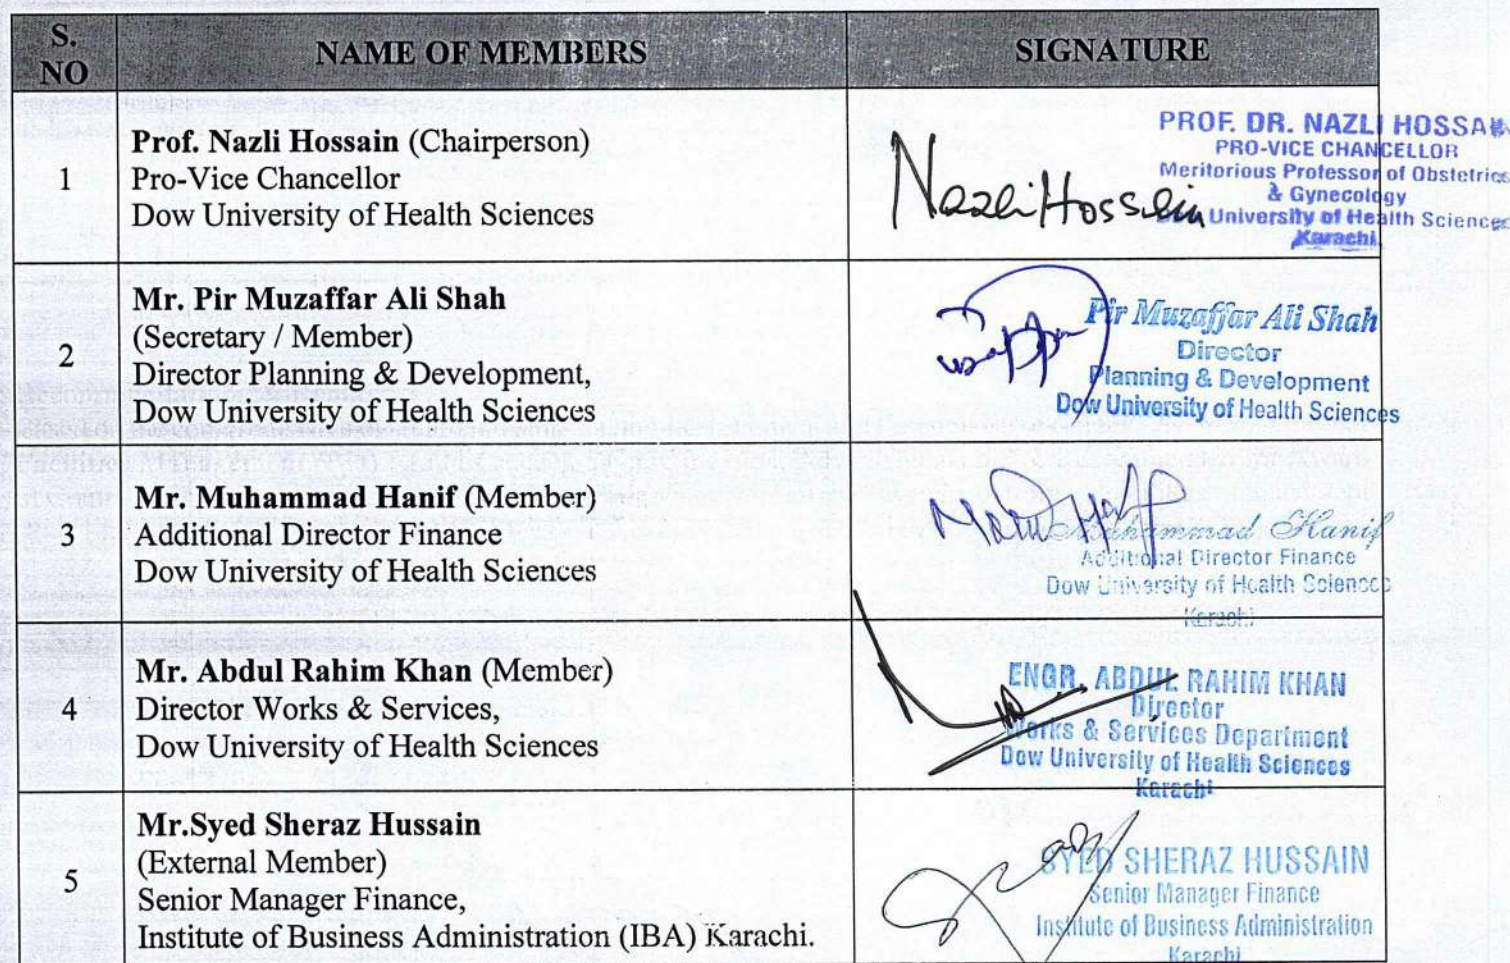 S. NO
NAME OF MEMBERS
SIGNATURE
1
Prof. Nazli Hossain (Chairperson)
Pro-Vice Chancellor
Dow University of Health Sciences
Nazli Hossein
PROF. DR. NAZLI HOSSAIN
PRO-VICE CHANCELLOR
Meritorious Professor of Obstetrics
& Gynecology
University of Health Sciences
Karachi
2
Mr. Pir Muzaffar Ali Shah
(Secretary / Member)
Director Planning & Development,
Dow University of Health Sciences
Pir Muzaffar Ali Shah
Director
Planning & Development
Dow University of Health Sciences
3
Mr. Muhammad Hanif (Member)
Additional Director Finance
Dow University of Health Sciences
Muhammad Hanif
Additional Director Finance
Dow University of Health Sciences
Karachi
4
Mr. Abdul Rahim Khan (Member)
Director Works & Services,
Dow University of Health Sciences
ENGR. ABDUL RAHIM KHAN
Director
Works & Services Department
Dow University of Health Sciences
Karachi
5
Mr.Syed Sheraz Hussain
(External Member)
Senior Manager Finance,
Institute of Business Administration (IBA) Karachi.
SYED SHERAZ HUSSAIN
Senior Manager Finance
Institute of Business Administration
Karachi